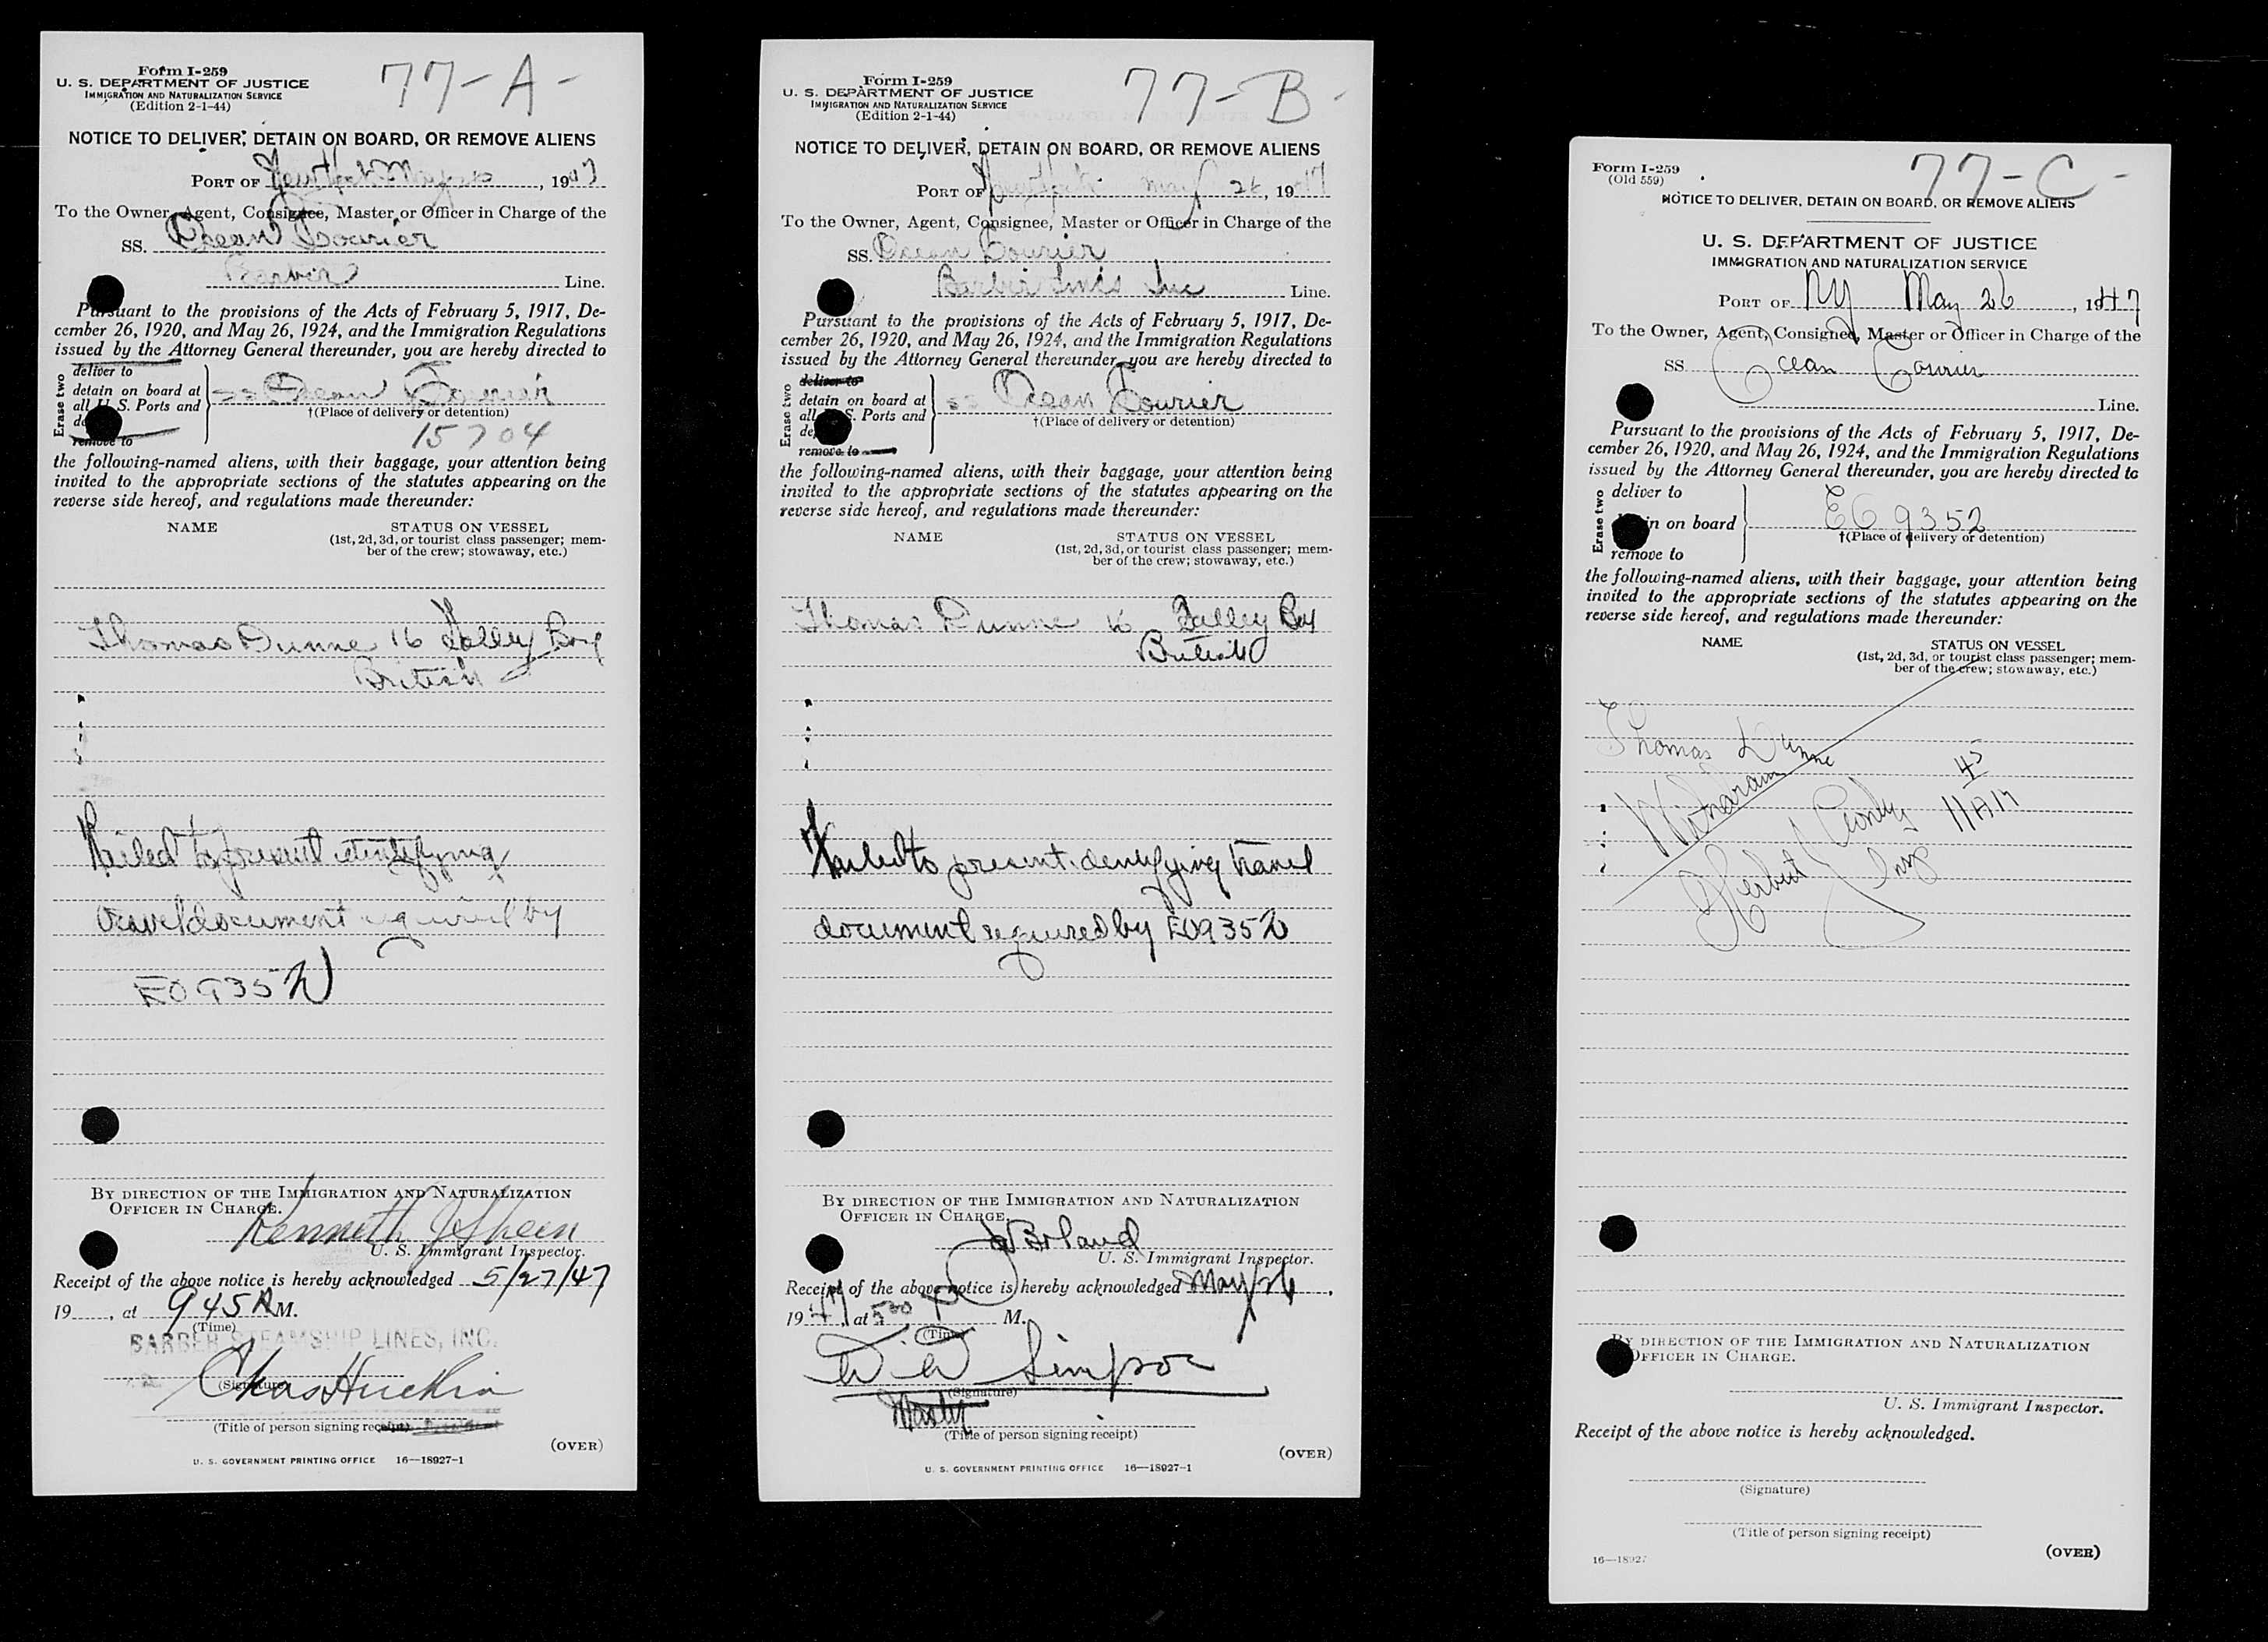 77-A-
Form I-259
U. S. DEPARTMENT OF JUSTICE
IMMIGRATION AND NATURALIZATION SERVICE
(Edition 2-1-44)
NOTICE TO DELIVER, DETAIN ON BOARD, OR REMOVE ALIENS
PORT OF New York May 26, 1947
To the Owner, Agent, Consignee, Master or Officer in Charge of the
SS. Ocean Courier
Barber Line.
Pursuant to the provisions of the Acts of February 5, 1917, De-
cember 26, 1920, and May 26, 1924, and the Immigration Regulations
issued by the Attorney General thereunder, you are hereby directed to
Erase two
deliver to
detain on board at
all U. S. Ports and
remove to
SS Ocean Courier
†(Place of delivery or detention)
15704
the following-named aliens, with their baggage, your attention being
invited to the appropriate sections of the statutes appearing on the
reverse side hereof, and regulations made thereunder:
NAME STATUS ON VESSEL
(1st, 2d, 3d, or tourist class passenger; mem-
ber of the crew; stowaway, etc.)
Thomas Dunne 16 Galley Boy
British
Failed to present identifying
travel document required by
EO 9352
BY DIRECTION OF THE IMMIGRATION AND NATURALIZATION
OFFICER IN CHARGE.
Kenneth J Sheen
U. S. Immigrant Inspector.
Receipt of the above notice is hereby acknowledged 5/27/47
19...., at 9 45 A M.
(Time)
BARBER STEAMSHIP LINES, INC.
Chas
(Signature)
(Title of person signing receipt)
(OVER)
U. S. GOVERNMENT PRINTING OFFICE 16—18927-1
77-B-
Form I-259
U. S. DEPARTMENT OF JUSTICE
IMMIGRATION AND NATURALIZATION SERVICE
(Edition 2-1-44)
NOTICE TO DELIVER, DETAIN ON BOARD, OR REMOVE ALIENS
PORT OF New York May 26, 1947
To the Owner, Agent, Consignee, Master or Officer in Charge of the
SS. Ocean Courier
Barber Lines Inc Line.
Pursuant to the provisions of the Acts of February 5, 1917, De-
cember 26, 1920, and May 26, 1924, and the Immigration Regulations
issued by the Attorney General thereunder, you are hereby directed to
Erase two
deliver to
detain on board at
all U. S. Ports and
remove to
SS Ocean Courier
†(Place of delivery or detention)
the following-named aliens, with their baggage, your attention being
invited to the appropriate sections of the statutes appearing on the
reverse side hereof, and regulations made thereunder:
NAME STATUS ON VESSEL
(1st, 2d, 3d, or tourist class passenger; mem-
ber of the crew; stowaway, etc.)
Thomas Dunne 16 Galley Boy
British
Failed to present identifying travel
document required by EO 9352
BY DIRECTION OF THE IMMIGRATION AND NATURALIZATION
OFFICER IN CHARGE.
Boland
U. S. Immigrant Inspector.
Receipt of the above notice is hereby acknowledged May 26,
1947, at 5 00 P M.
(Time)
W W Simpson
(Signature)
Master
(Title of person signing receipt)
(OVER)
U. S. GOVERNMENT PRINTING OFFICE 16—18927-1
77-C-
Form I-259
(Old 559)
NOTICE TO DELIVER, DETAIN ON BOARD, OR REMOVE ALIENS
U. S. DEPARTMENT OF JUSTICE
IMMIGRATION AND NATURALIZATION SERVICE
PORT OF NY May 26, 1947
To the Owner, Agent, Consignee, Master or Officer in Charge of the
SS Ocean Courier
Line.
Pursuant to the provisions of the Acts of February 5, 1917, De-
cember 26, 1920, and May 26, 1924, and the Immigration Regulations
issued by the Attorney General thereunder, you are hereby directed to
Erase two
deliver to
detain on board
remove to
EO 9352
†(Place of delivery or detention)
the following-named aliens, with their baggage, your attention being
invited to the appropriate sections of the statutes appearing on the
reverse side hereof, and regulations made thereunder:
NAME STATUS ON VESSEL
(1st, 2d, 3d, or tourist class passenger; mem-
ber of the crew; stowaway, etc.)
Thomas Dunne
Withdrawn
45
11AM
Herbert
Insp
BY DIRECTION OF THE IMMIGRATION AND NATURALIZATION
OFFICER IN CHARGE.
U. S. Immigrant Inspector.
Receipt of the above notice is hereby acknowledged.
(Signature)
(Title of person signing receipt)
16—18927
(OVER)